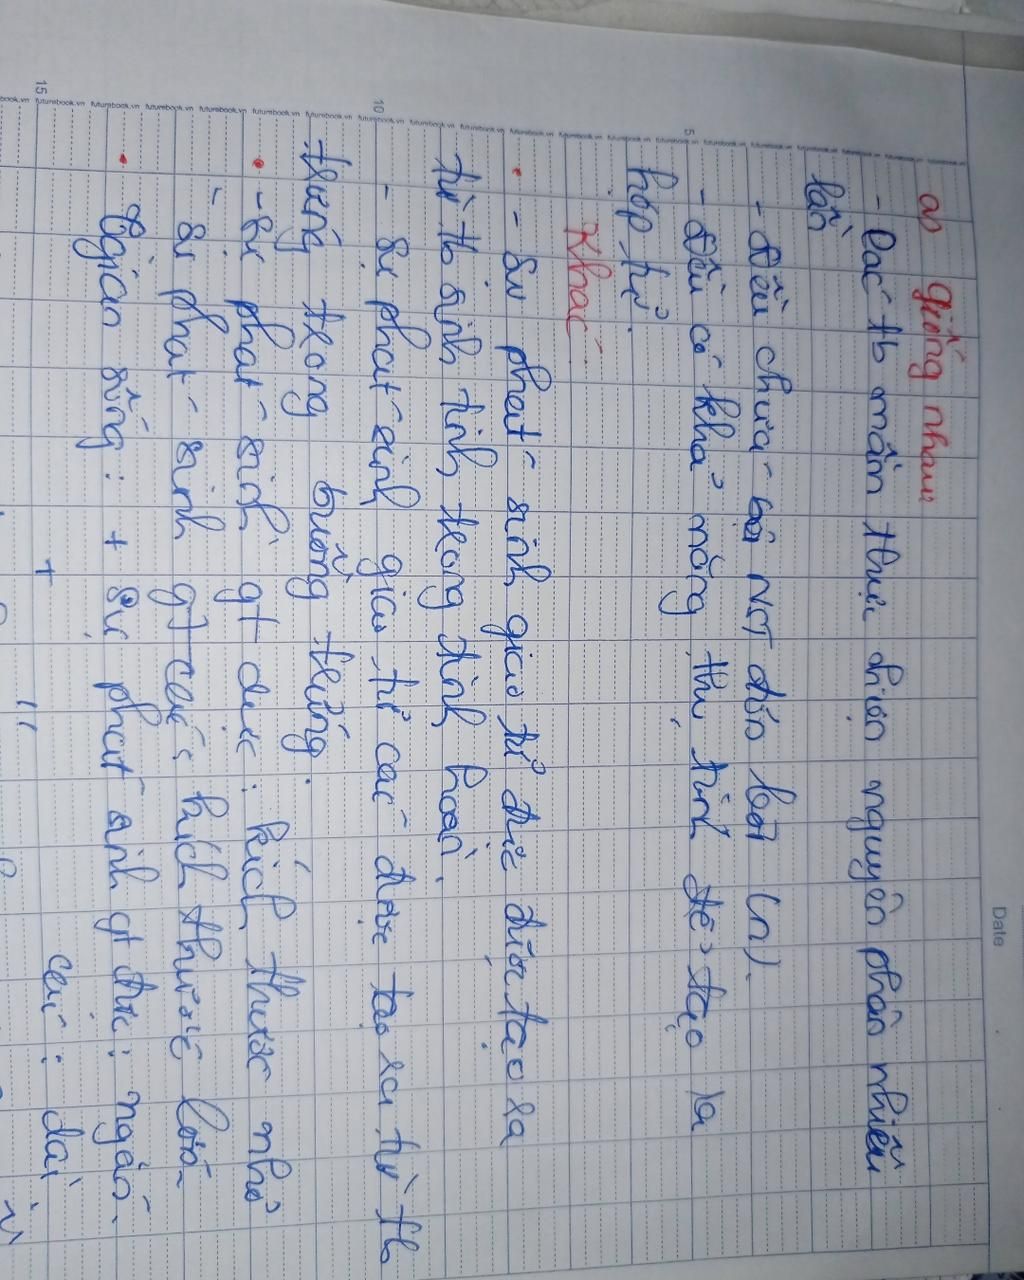 Date
a) giống nhau:
- Các tb mầm thực hiện nguyên phân nhiều
lần
- đều chứa bộ NST đơn bội (n).
5
- đều có khả năng thụ tinh để tạo ra
hợp tử.
Khác:
- Sự phát sinh giao tử đực được tạo ra
từ tb sinh tinh trong tinh hoàn.
10
- Sự phát sinh giao tử cái được tạo ra từ tb
trứng trong buồng trứng.
- Sự phát sinh gt đực: kích thước nhỏ
- Sự phát sinh gt cái: kích thước lớn
• Cgian sống: + Sự phát sinh gt đực: ngắn.
15
+ " cái: dài
futurebook.vn